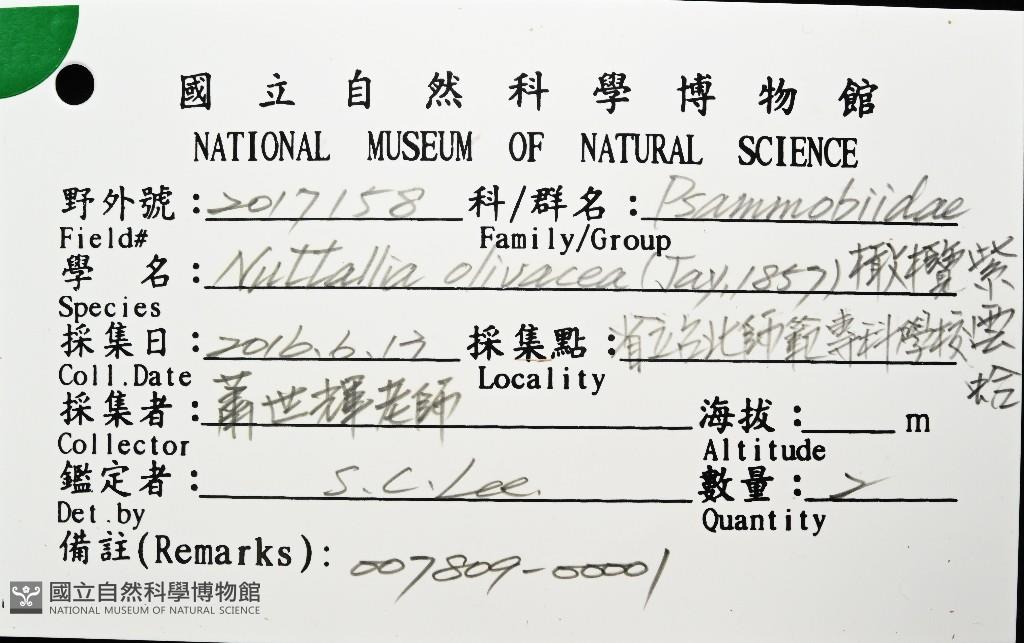 國立自然科學博物館
NATIONAL MUSEUM OF NATURAL SCIENCE
野外號：2017158 科/群名：Psammobiidae
Field# Family/Group
學名：Nuttallia olivacea (Jay, 1857) 橄欖紫雲蛤
Species
採集日：2016.6.17 採集點：省立台北師範專科學校
Coll.Date Locality
採集者：蕭世輝老師 海拔： m
Collector Altitude
鑑定者：S.C.Lee. 數量：2
Det.by Quantity
備註(Remarks)：007809-00001
國立自然科學博物館
NATIONAL MUSEUM OF NATURAL SCIENCE